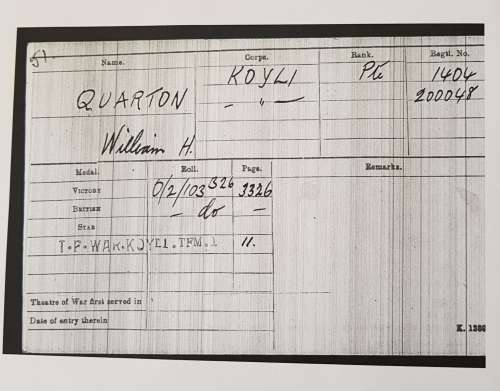 51.
Name. Corps. Rank. Regtl. No.
KOYLI Pte 1404
QUARTON — " — 200048
William H.
Medal. Roll. Page. Remarks.
Victory O/2/103 B26 3326
British — do —
Star
T.F.WAR.KOYLI.TFM.1 11.
Theatre of War first served in
Date of entry therein
K. 1380